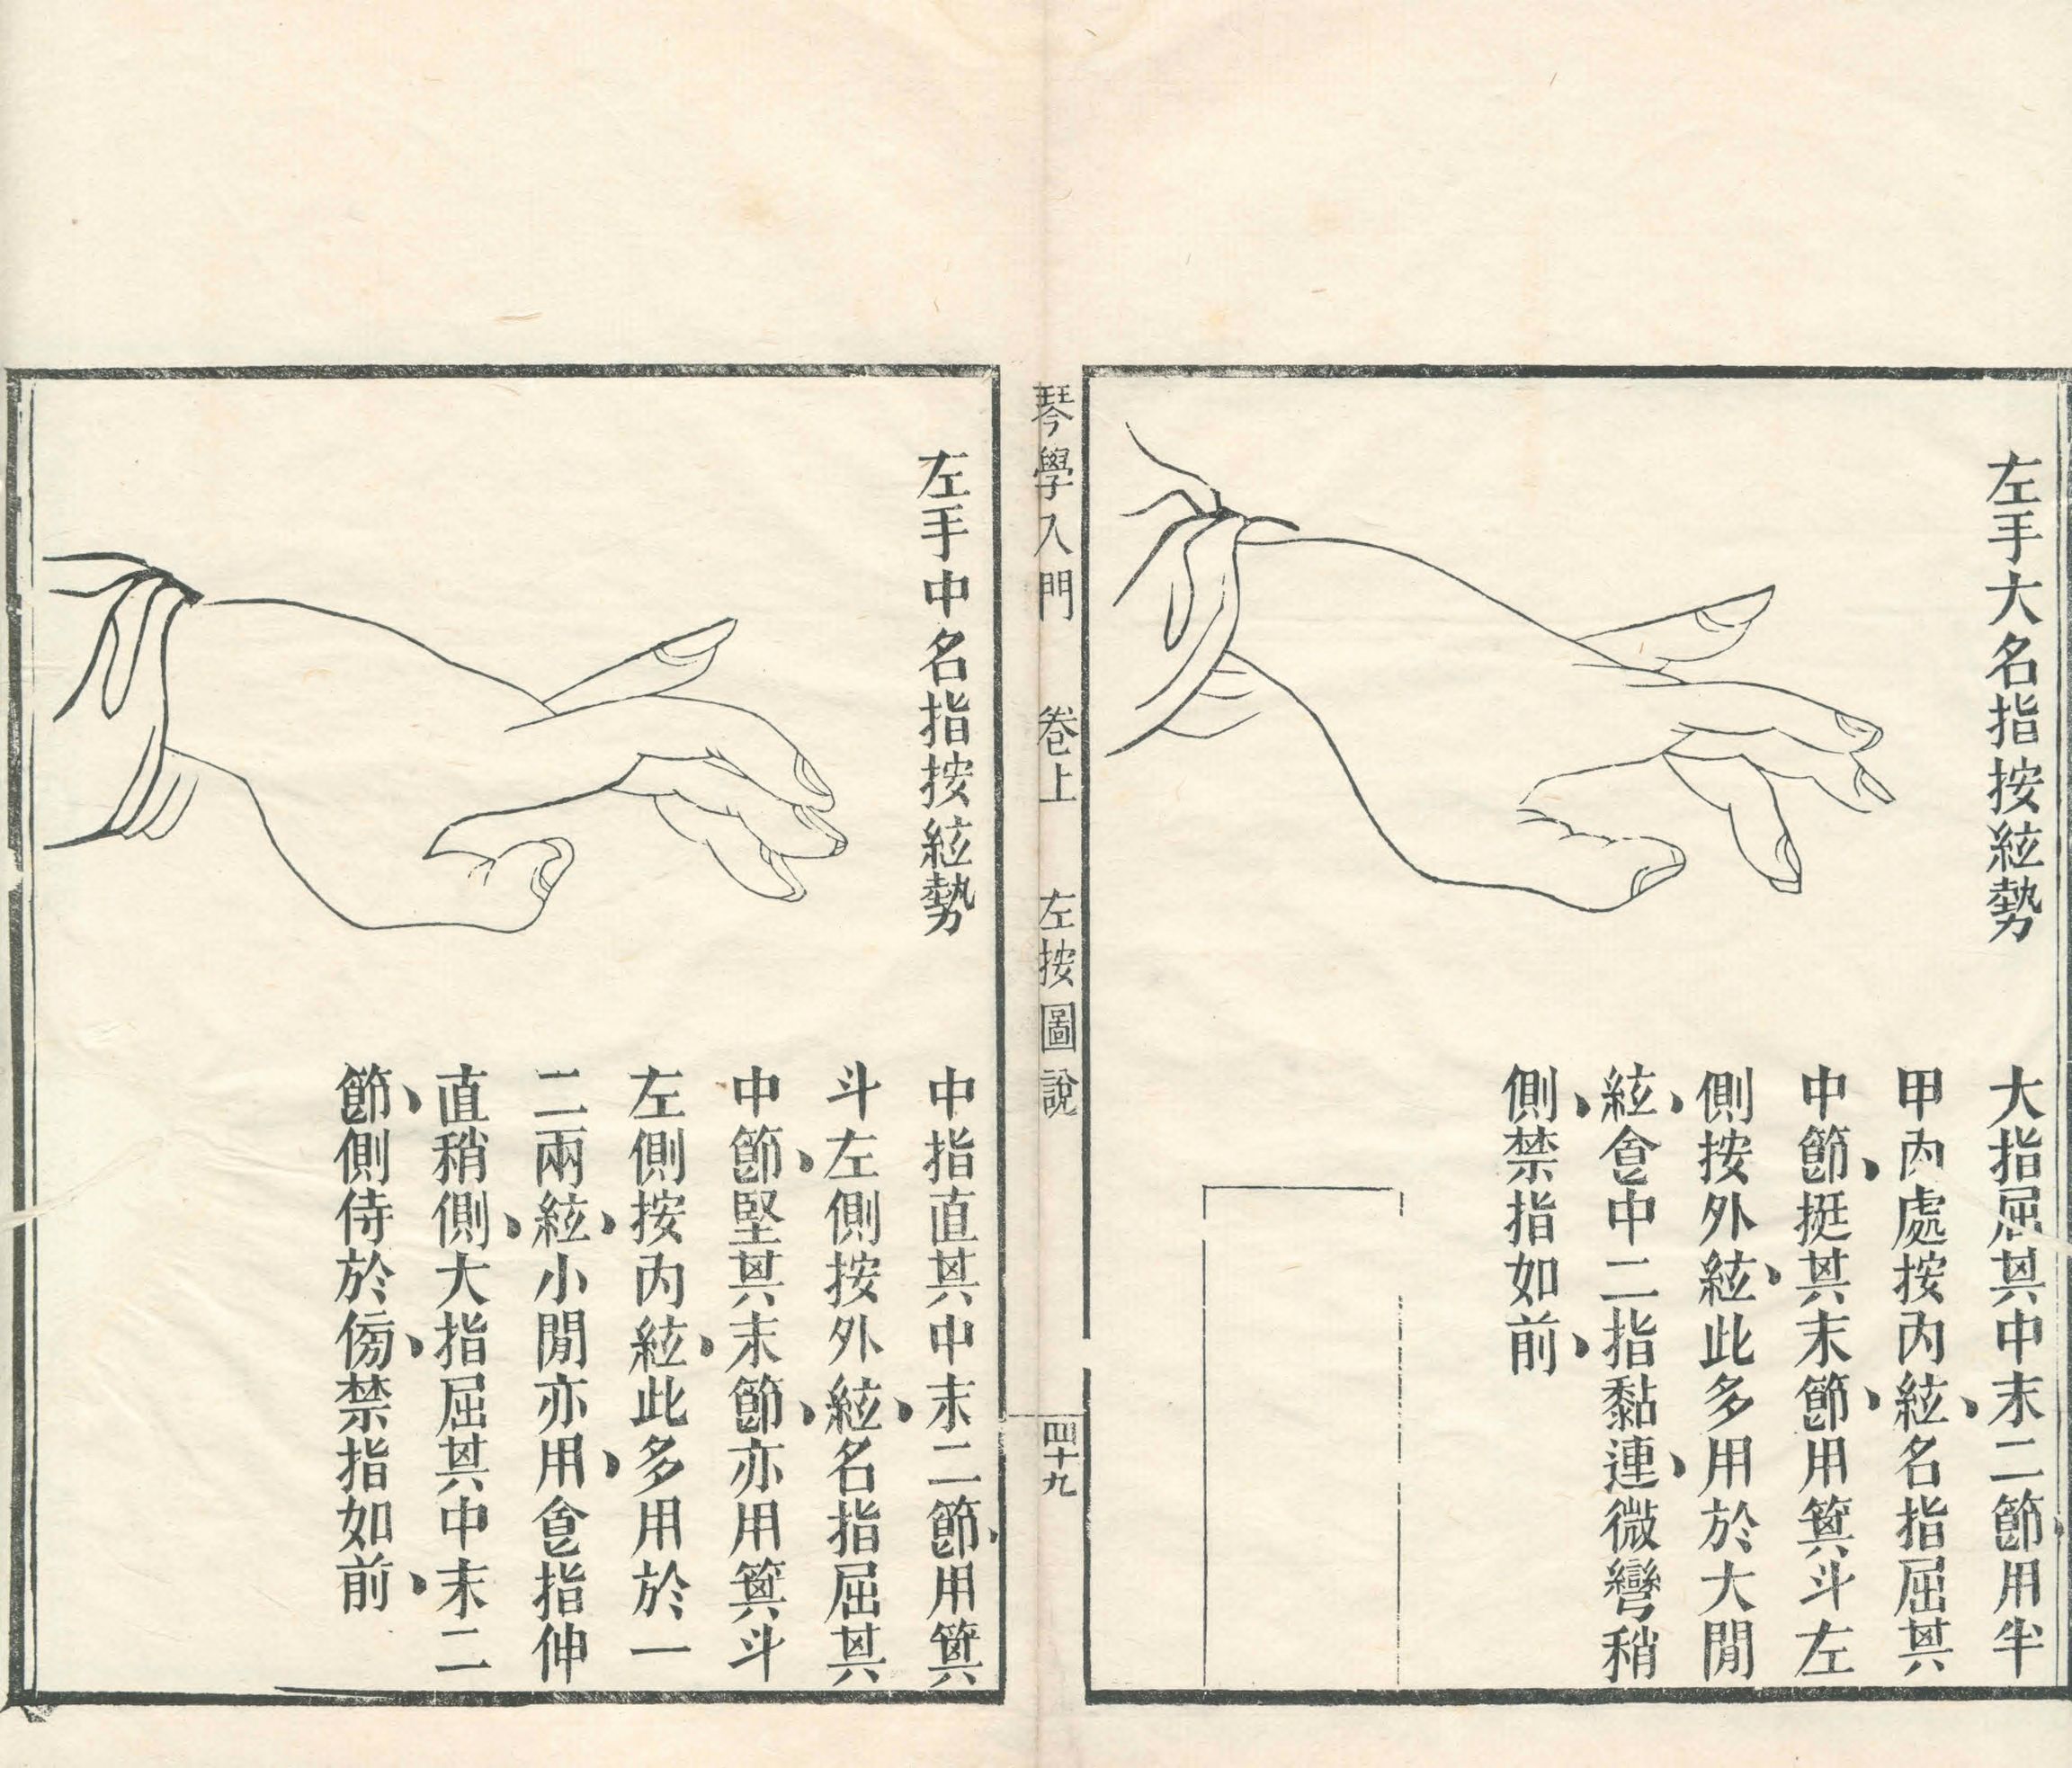 左手大名指按絃勢
大指屈其中末二節、用半
甲肉處按內絃、名指屈其
中節、挺其末節、用箕斗左
側按外絃、此多用於大閒
絃、食中二指黏連、微彎稍
側、禁指如前、
琴學入門 卷上 左按圖說 四十九
左手中名指按絃勢
中指直其中末二節、用箕
斗左側按外絃、名指屈其
中節、堅其末節、亦用箕斗
左側按內絃、此多用於一
二兩絃、小閒亦用、食指伸
直稍側、大指屈其中末二
節、側侍於傍、禁指如前、